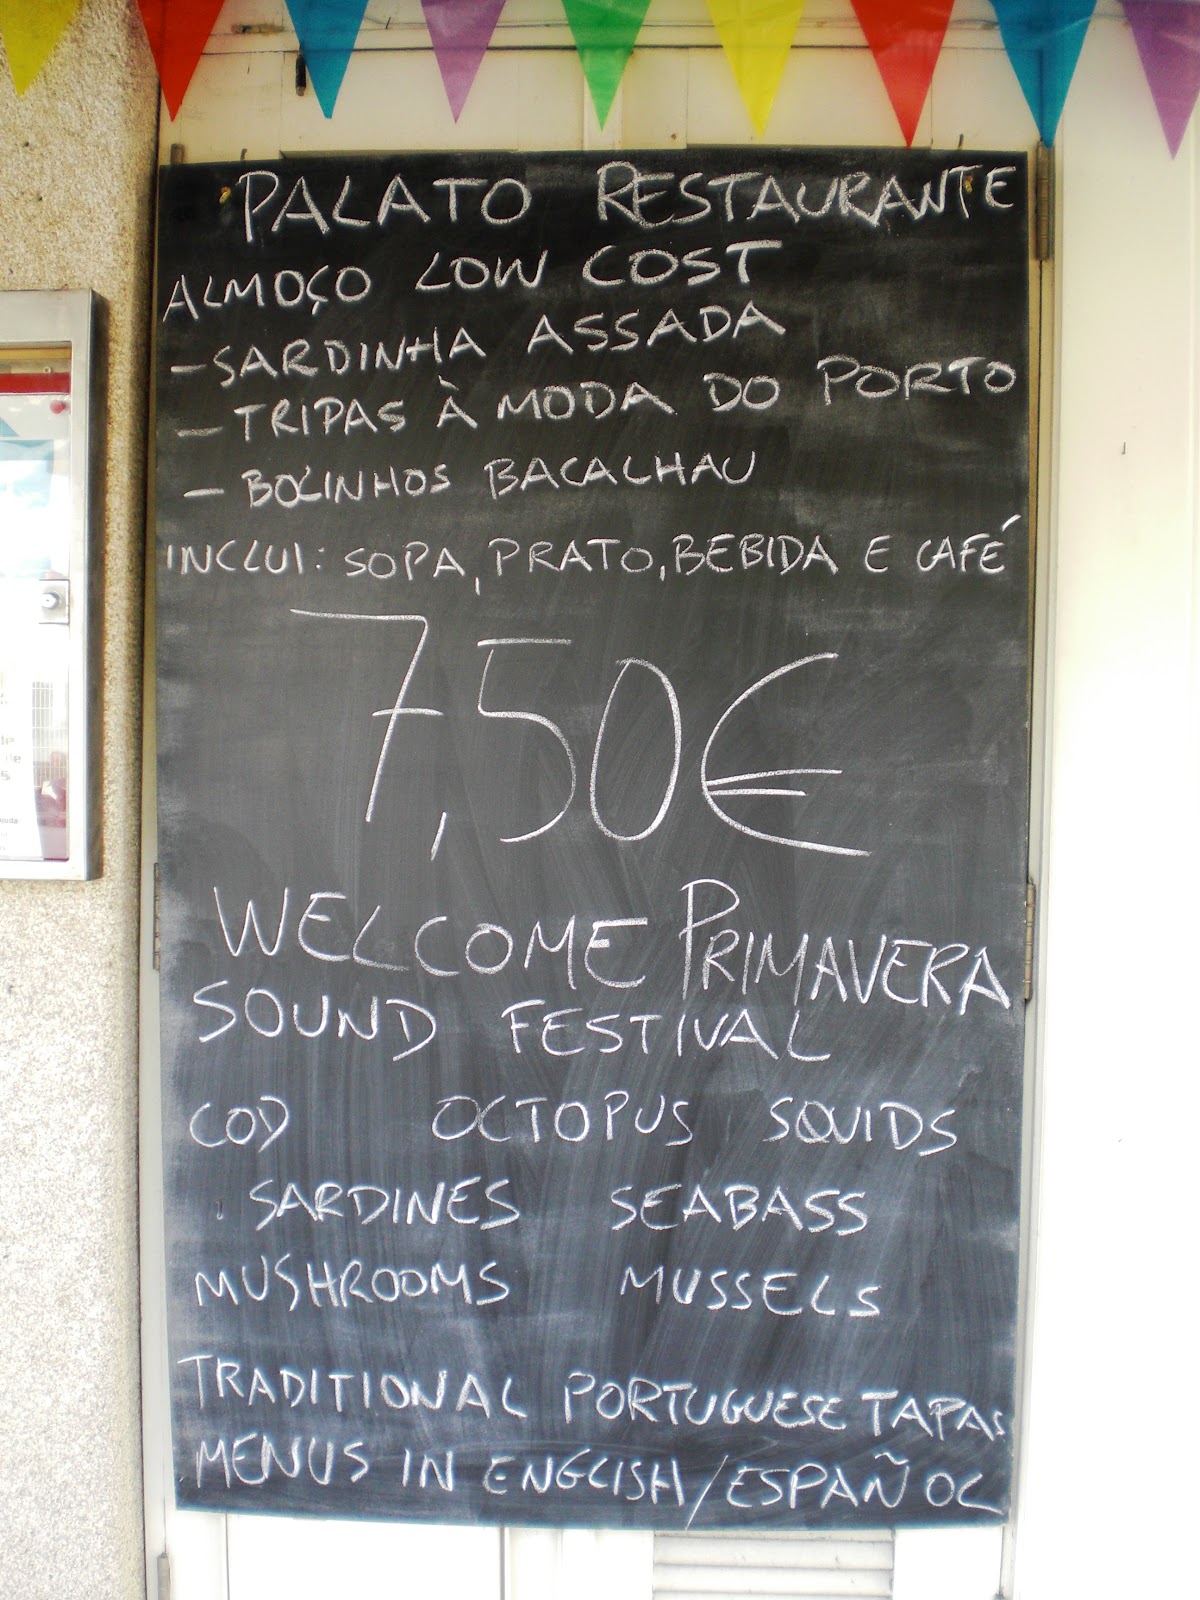 PALATO RESTAURANTE
ALMOÇO LOW COST
– SARDINHA ASSADA
– TRIPAS À MODA DO PORTO
– BOLINHOS BACALHAU
INCLUI: SOPA, PRATO, BEBIDA E CAFÉ
7,50€
WELCOME PRIMAVERA
SOUND FESTIVAL
COD OCTOPUS SQUIDS
SARDINES SEABASS
MUSHROOMS MUSSELS
TRADITIONAL PORTUGUESE TAPAS
MENUS IN ENGLISH/ESPAÑOL